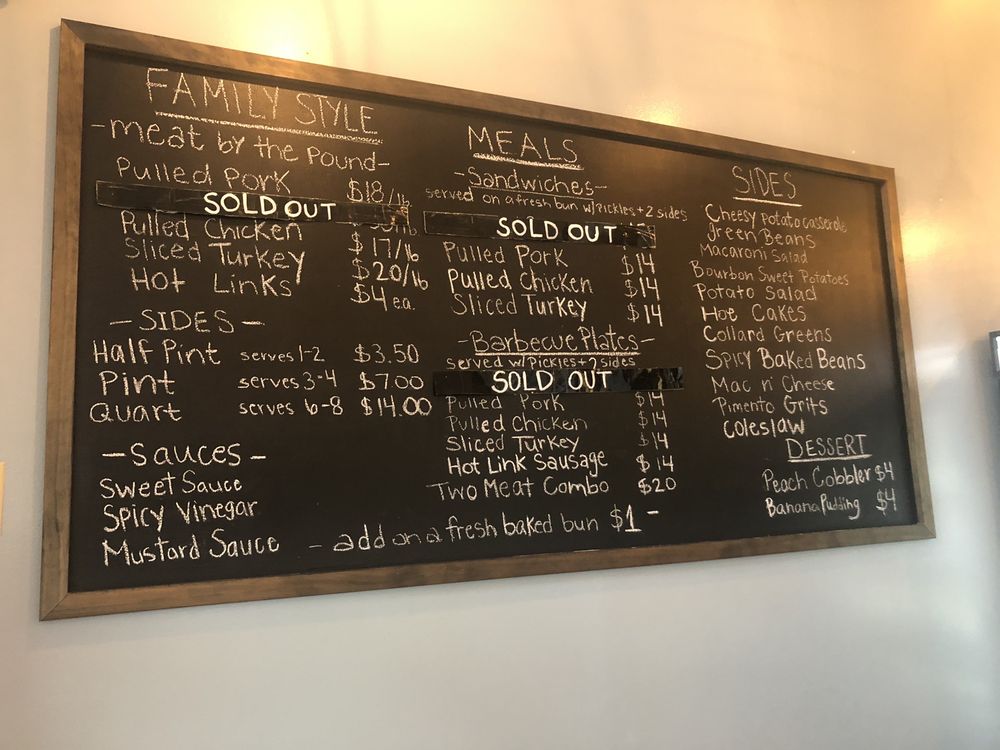 FAMILY STYLE
-meat by the Pound-
Pulled Pork $18/lb
SOLD OUT
Pulled Chicken $17/lb
Sliced Turkey $20/lb
Hot Links $4 ea.
-SIDES-
Half Pint serves 1-2 $3.50
Pint serves 3-4 $7.00
Quart serves 6-8 $14.00
-Sauces-
Sweet Sauce
Spicy Vinegar
Mustard Sauce
MEALS
-Sandwiches-
served on a fresh bun w/Pickles+2 sides
SOLD OUT
Pulled Pork $14
Pulled Chicken $14
Sliced Turkey $14
-Barbecue Plates-
served w/Pickles+2 sides
SOLD OUT
Pulled Pork $14
Pulled Chicken $14
Sliced Turkey $14
Hot Link Sausage $14
Two Meat Combo $20
- add on a fresh baked bun $1-
SIDES
Cheesy Potato casserole
green Beans
Macaroni Salad
Bourbon Sweet Potatoes
Potato Salad
Hoe Cakes
Collard Greens
Spicy Baked Beans
Mac n' Cheese
Pimento Grits
Coleslaw
DESSERT
Peach Cobbler $4
Banana Pudding $4